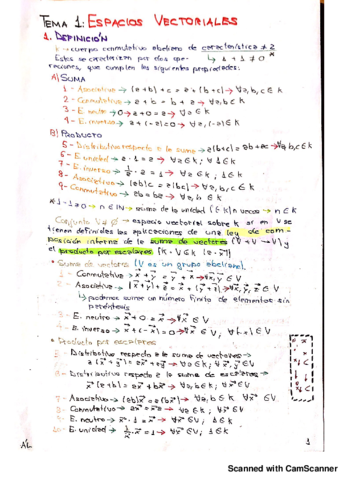 TEMA 1: ESPACIOS VECTORIALES
1. DEFINICIÓN
k → cuerpo conmutativo abeliano de característica ≠ 2
Estos se caracterizan por dos ope- ↳ 1 + 1 ≠ 0
raciones, que cumplen las siguientes propiedades:
A) SUMA
1 - Asociativa → (a+b)+c = a+(b+c) → ∀a,b,c ∈ k
2 - Conmutativa → a+b = b+a → ∀a,b ∈ k
3 - E. neutro → 0 → a+0 = a → ∀a ∈ k
4 - E. inverso → a+(-a) = 0 → ∀a,(-a) ∈ k
B) PRODUCTO
5 - Distributiva respecto a la suma → a(b+c) = ab+ac → ∀a,b,c ∈ k
6 - E. unidad → a·1 = a → ∀a ∈ k; ∀1 ∈ k
7 - E. inverso → 1/a · a = 1 → ∀a ∈ k; 1 ∈ k
8 - Asociativa → (ab)c = a(bc) → ∀a,b,c ∈ k
9 - Conmutativa → ab = ba → ∀a,b ∈ k
suma de la unidad (∈ k) n veces → n ∈ k
Conjunto V ≠ ∅ → espacio vectorial sobre k si en V se
tienen definidas las aplicaciones de una ley de com-
posición interna de la suma de vectores (V + V → V) y
el producto por escalares
• Suma de vectores (V es un grupo abeliano).
1 - Conmutativa → x⃗ + y⃗ = y⃗ + x⃗ → ∀x⃗, y⃗ ∈ V
2 - Asociativa → (x⃗ + y⃗) + z⃗ = x⃗ + (y⃗ + z⃗) → ∀x⃗, y⃗, z⃗ ∈ V
↳ podemos sumar un número finito de elementos sin
paréntesis
3 - E. neutro → x⃗ + 0 = x⃗ → ∀x⃗ ∈ V
4 - E. inverso → x⃗ + (-x⃗) = 0 → ∀x⃗ ∈ V,
• Producto por escalares
5 - Distributiva respecto a la suma de vectores →
a(x⃗ + y⃗) = ax⃗ + ay⃗ → ∀a ∈ k; ∀x⃗, y⃗ ∈ V
6 - Distributiva respecto a la suma de escalares →
x⃗(a+b) = ax⃗ + bx⃗ → ∀a,b ∈ k; ∀x⃗ ∈ V
7 - Asociativa → (ab)x⃗ = a(bx⃗) → ∀a,b ∈ k ∀x⃗ ∈ V
8 - Conmutativa → ax⃗ = x⃗a → ∀a ∈ k; ∀x⃗ ∈ V
9 - E. neutro → x⃗ · 1 = x⃗ → ∀x⃗ ∈ V; 1 ∈ k
10 - E. unidad → 1/x⃗ · x⃗ = 1 → ∀x⃗ ∈ V; 1 ∈ k
1
Scanned with CamScanner